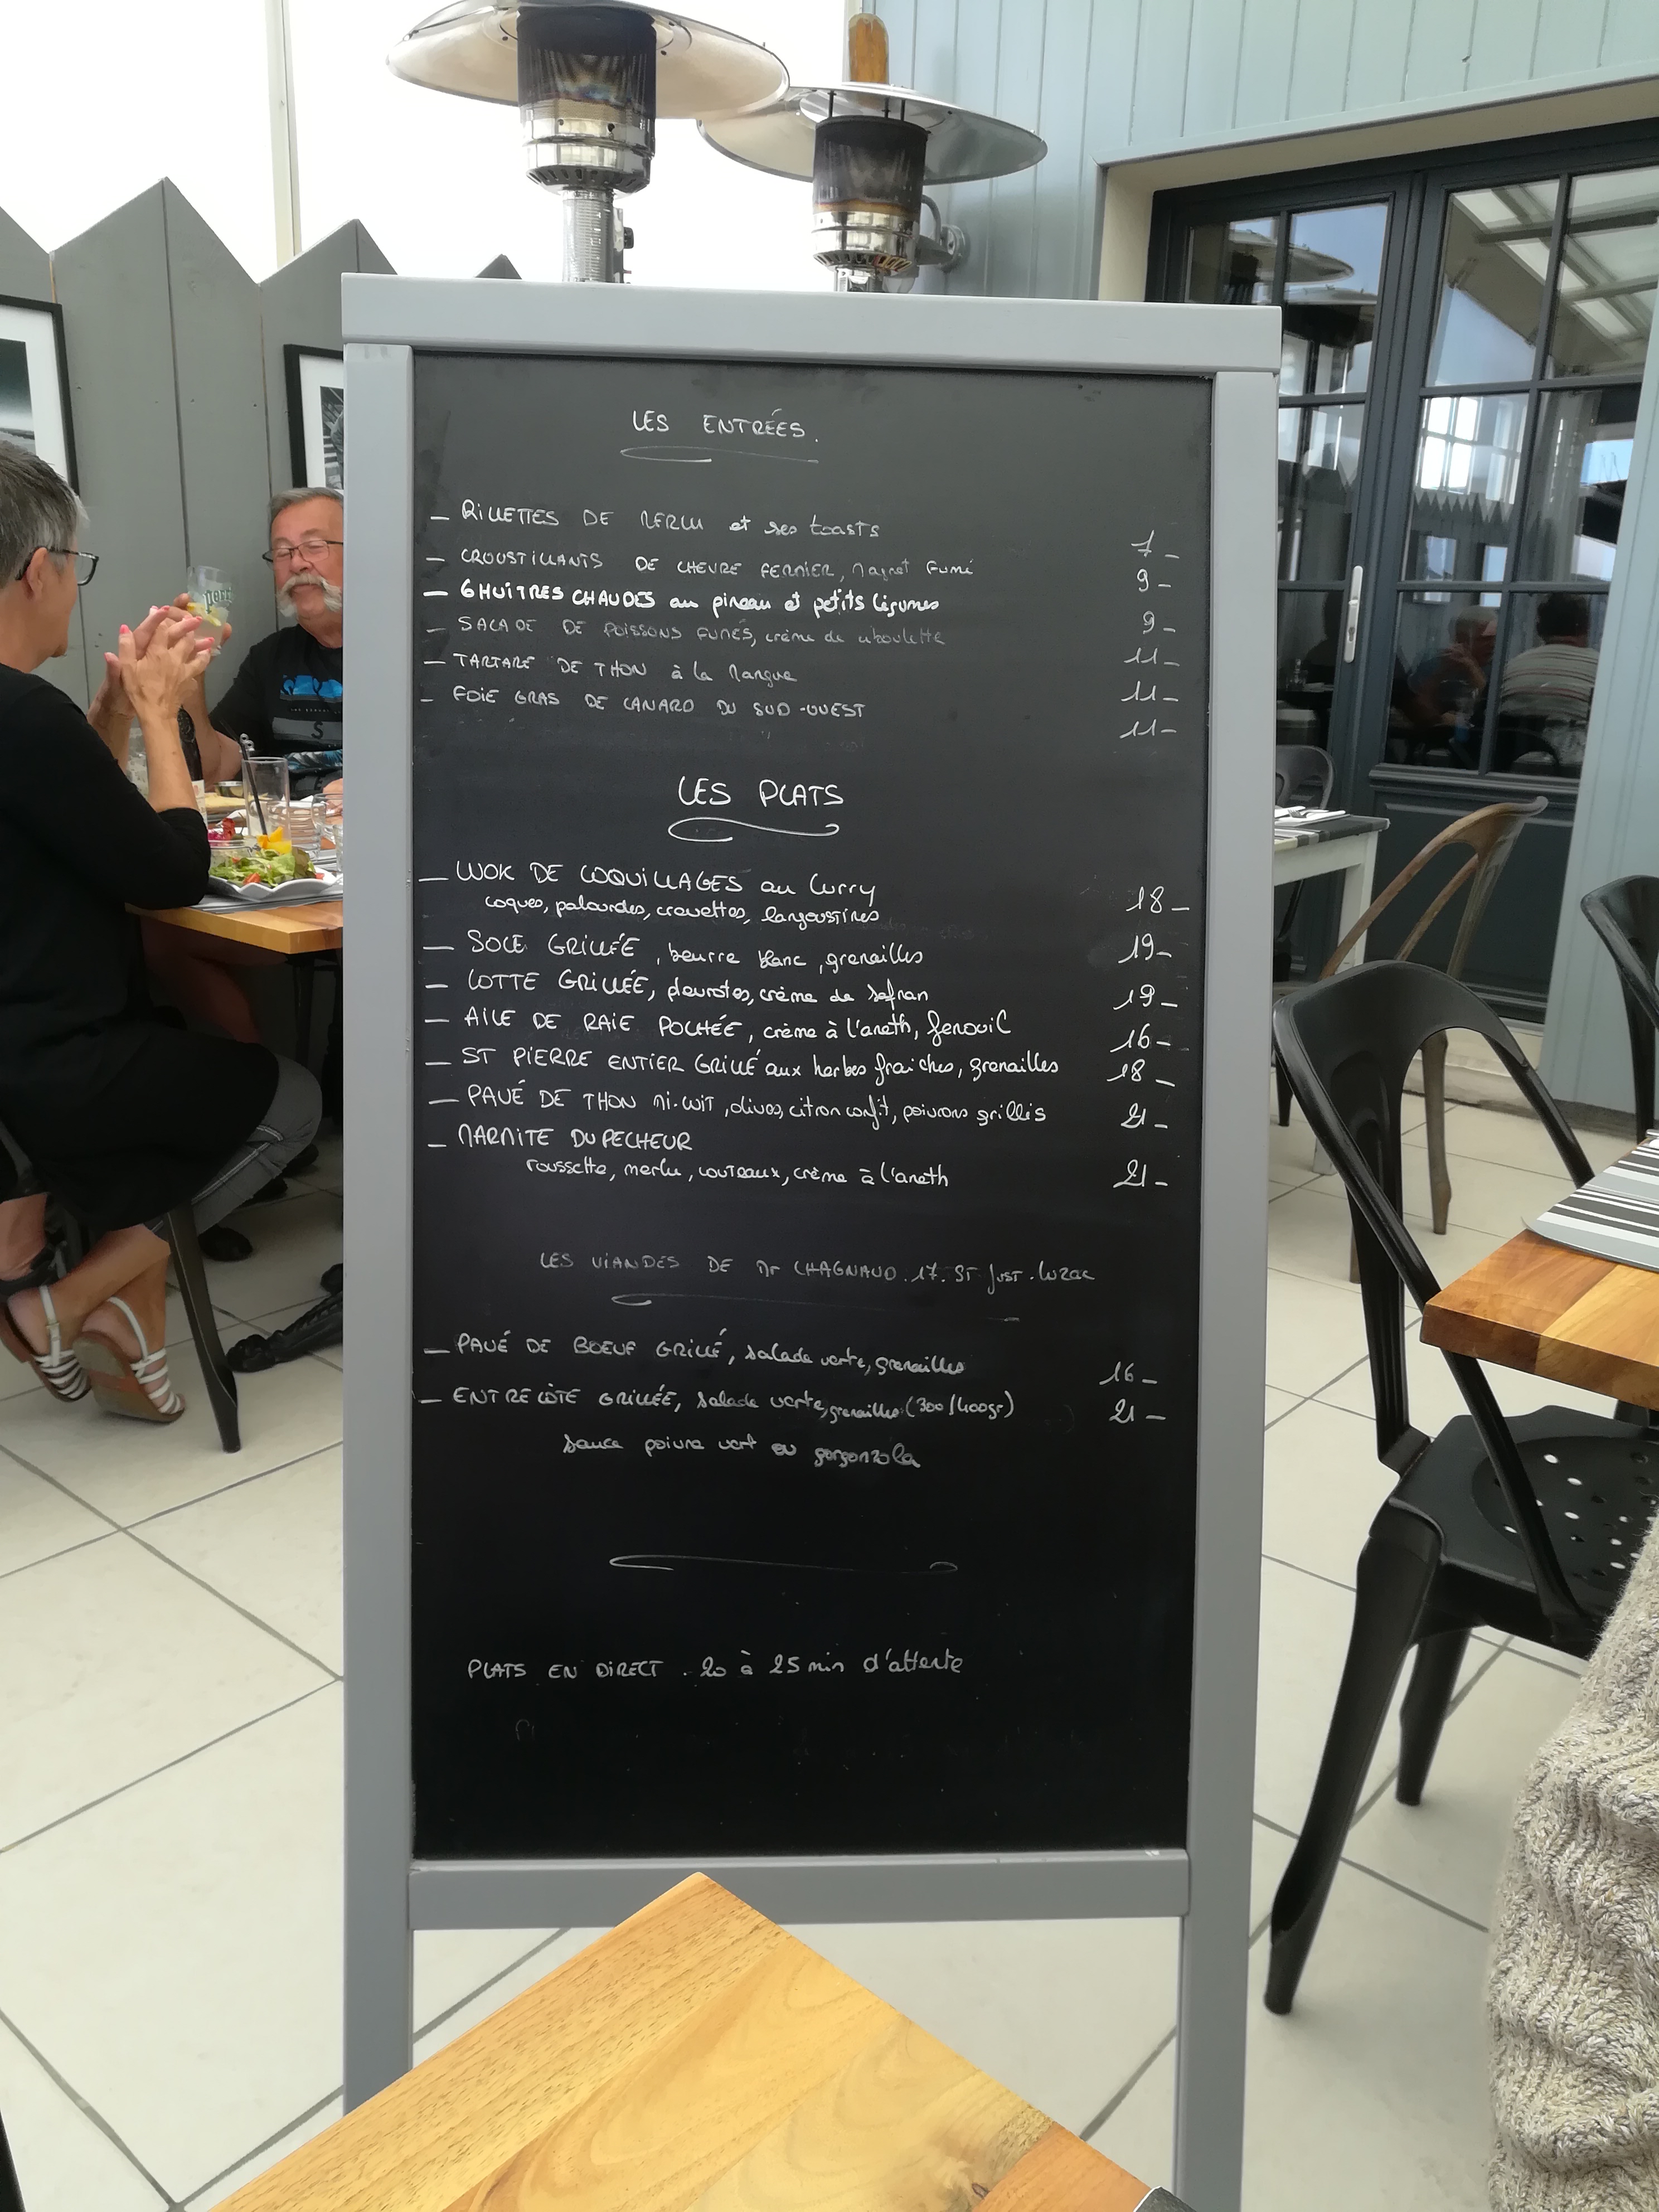 LES ENTRÉES.
– RILLETTES DE MERLU et ses toasts 7 –
– CROUSTILLANTS DE CHEVRE FERMIER, Magret Fumé 9 –
– 6 HUITRES CHAUDES au pineau et petits légumes 9 –
– SALADE DE POISSONS FUMÉS, crème de ciboulette 11 –
– TARTARE DE THON à la Mangue 11 –
– FOIE GRAS DE CANARD DU SUD-OUEST 11 –
LES PLATS
– WOK DE COQUILLAGES au Curry 18 –
coques, palourdes, crevettes, langoustines
– SOLE GRILLÉE, beurre blanc, grenailles 19 –
– LOTTE GRILLÉE, pleurotes, crème de safran 19 –
– AILE DE RAIE POCHÉE, crème à l'aneth, fenouil 16 –
– ST PIERRE ENTIER GRILLÉ aux herbes fraiches, grenailles 18 –
– PAVÉ DE THON MI-CUIT, olives, citron confit, poivrons grillés 21 –
– MARMITE DU PECHEUR
roussette, merlu, couteaux, crème à l'aneth 21 –
LES VIANDES DE Mr CHAGNAUD. 17. ST JUST. Luzac
– PAVÉ DE BOEUF GRILLÉ, salade verte, grenailles 16 –
– ENTRECÔTE GRILLÉE, salade verte, grenailles (300/400gr) 21 –
sauce poivre vert ou gorgonzola
PLATS EN DIRECT. 20 à 25 min d'attente